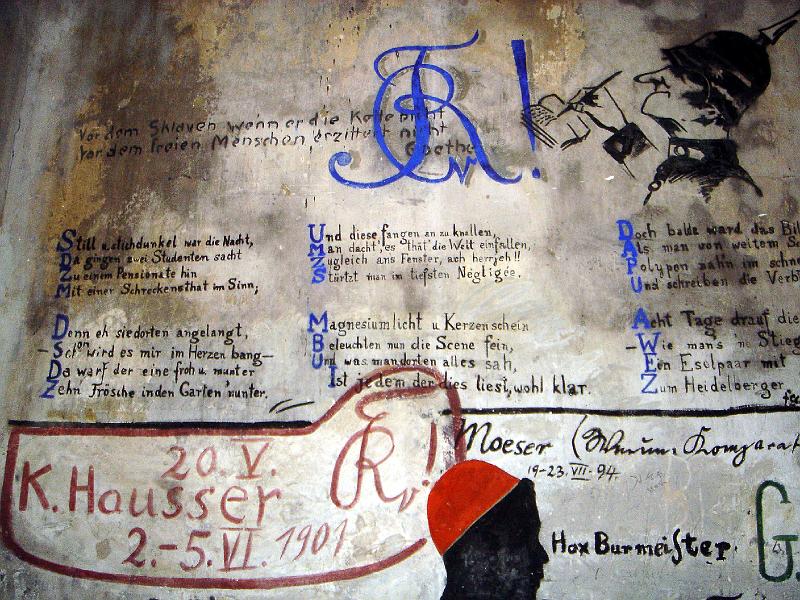 Vor dem Sklaven wenn er die Kette bricht
Vor dem freien Menschen erzittert nicht
Goethe
Still u. stichdunkel war die Nacht,
Da gingen zwei Studenten sacht
Zu einem Pensionate hin
Mit einer Schreckensthat im Sinn;
Denn eh sie dorten angelangt,
– Schon wird es mir im Herzen bang –
Da warf der eine froh u. munter
Zehn Frösche in den Garten 'nunter.
Und diese fangen an zu knallen,
Man dacht', es that' die Welt einfallen,
Zugleich ans Fenster, ach herrjeh!!
Stürtzt man im tiefsten Négligée.
Magnesiumlicht u Kerzenschein
Beleuchten nun die Scene fein,
Und was man dorten alles sah,
Ist jedem der dies liest, wohl klar.
Doch balde ward das Bil
Als man von weitem S
Polypen nahn im schne
Und schreiben die Verb
Acht Tage drauf die
– Wie mans ne Stieg
Ein Eselpaar mit
Zum Heidelberger
20. V.
K. Hausser
2.–5. VI. 1901
Moeser
19–23. VII. 94.
Hax Burmeister
G.